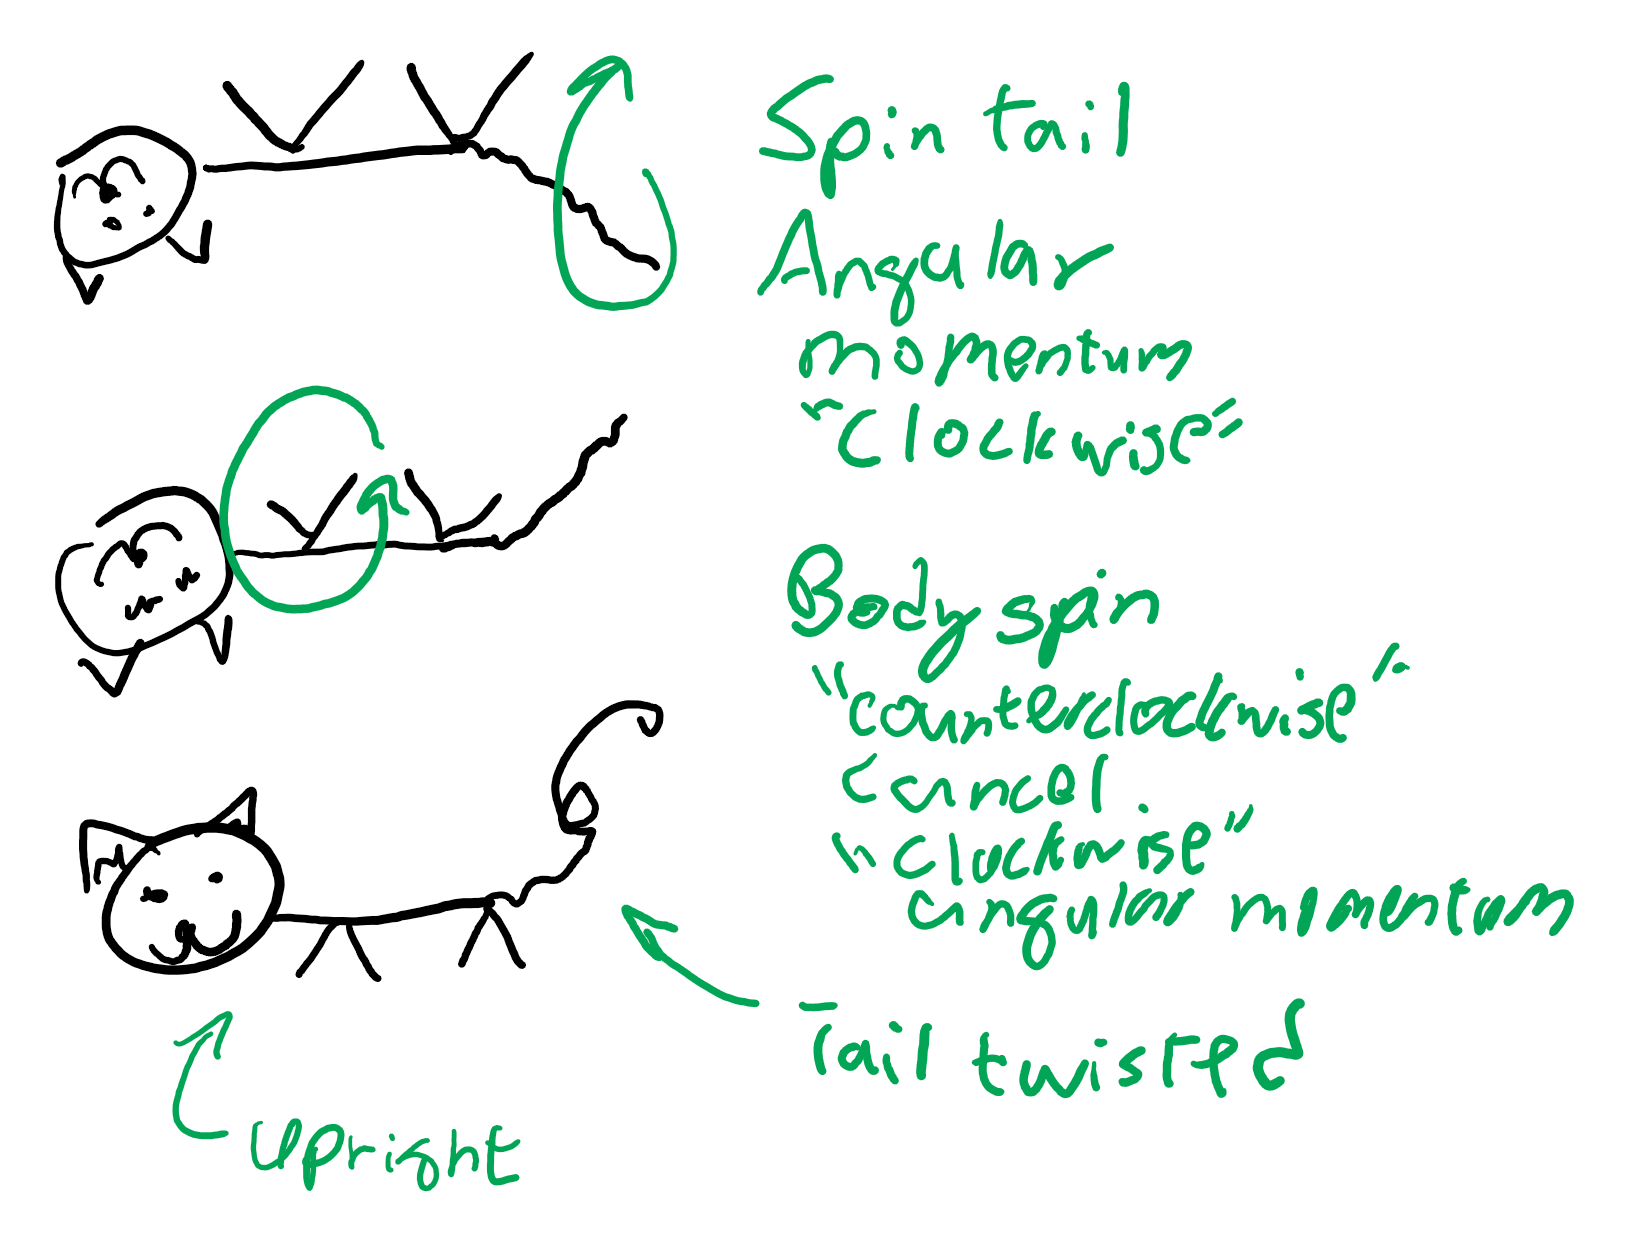 Spin tail
Angular
momentum
"Clockwise"
Body spin
"counterclockwise"
cancel
"clockwise"
angular momentum
Tail twisted
upright